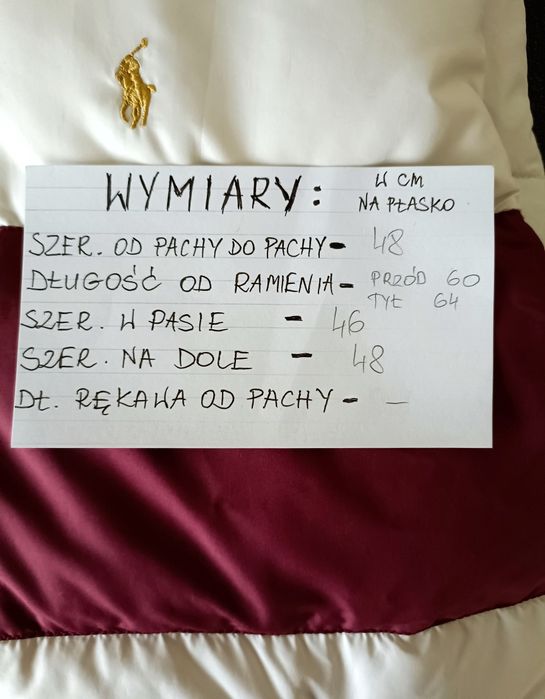 WYMIARY: W CM
NA PŁASKO
SZER. OD PACHY DO PACHY - 48
DŁUGOŚĆ OD RAMIENIA - PRZÓD 60
TYŁ 64
SZER. W PASIE - 46
SZER. NA DOLE - 48
DŁ. RĘKAWA OD PACHY - —